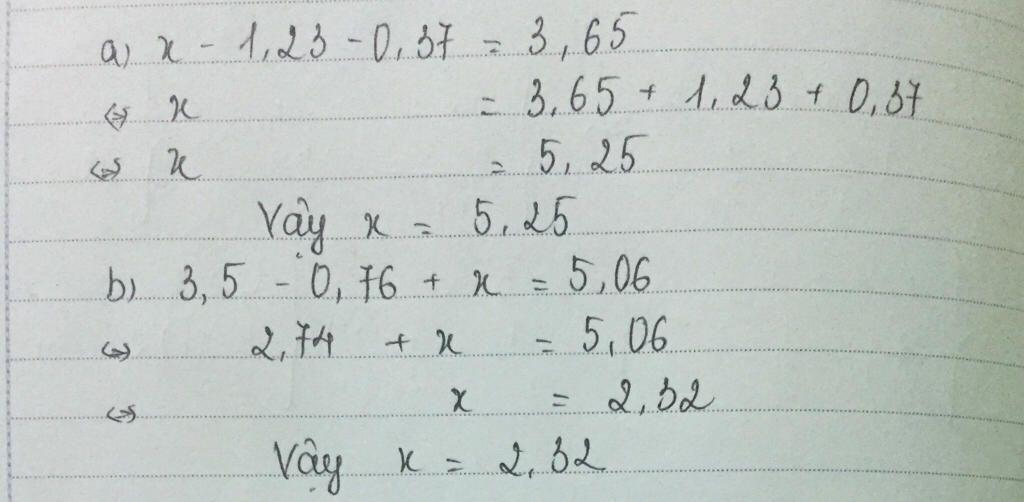 a) x - 1,23 - 0,37 = 3,65
⇔ x = 3,65 + 1,23 + 0,37
⇔ x = 5,25
Vậy x = 5,25
b) 3,5 - 0,76 + x = 5,06
⇔ 2,74 + x = 5,06
⇔ x = 2,32
Vậy x = 2,32